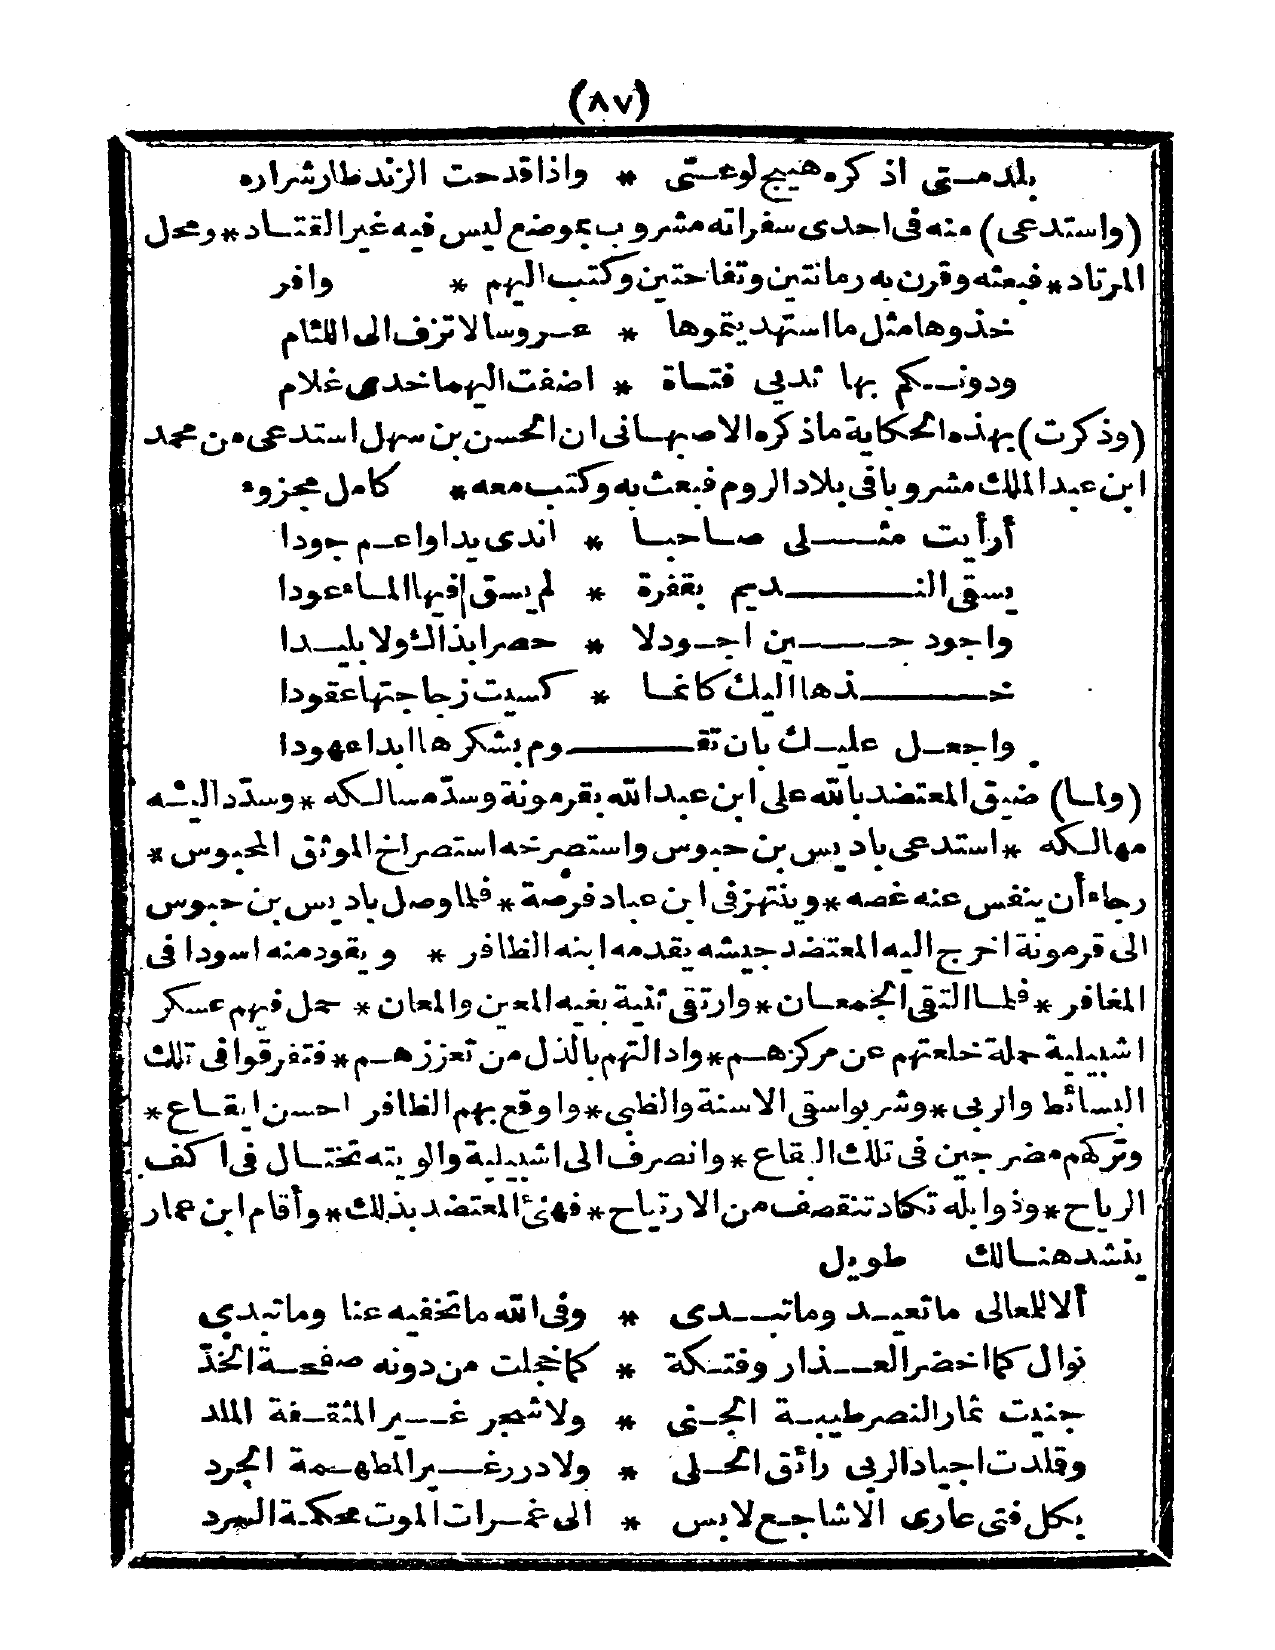 (٨٧)
بلدمتى اذ كره هيج لوعتى * واذا قدحت الزند طار شراره
(واستدعى) منه فى احدى سفراته مشروب بموضع ليس فيه غير القتاد * ومحل
المرتاد * فبعثه وقرن به رمانتين وتفاحتين وكتب اليهم * وافر
خذوها مثل ما استهديتموها * عروسا لا تزف الى اللئام
ودونكم بها ثديى فتاة * اضفت اليهما خدى غلام
(وذكرت) بهذه الحكاية ما ذكره الاصبهانى ان الحسن بن سهل استدعى من محمد
ابن عبد الملك مشروبا فى بلاد الروم فبعث به وكتب معه * كامل مجزوء
أرأيت مثلى صاحبا * اندى يدا واعم جودا
يسقى النديم بقفرة * لم يسق فيها الماء عودا
واجود حين اجود لا * حصرا بذاك ولا بليدا
خذها اليك كانما * كسيت زجاجتها عقودا
واجعل عليك بان تقوم بشكرها ابدا عهودا
(ولما) ضيق المعتضد بالله على ابن عبد الله بقرمونة وسدّ مسالكه * وسدّد اليه
مهالكه * استدعى باديس بن حبوس واستصرخه استصراخ الموثق المحبوس *
رجاء أن ينفس عنه غصه * وينتهز فى ابن عباد فرصة * فلما وصل باديس بن حبوس
الى قرمونة اخرج اليه المعتضد جيشه يقدمه ابنه الظافر * ويقود منه اسودا فى
المغافر * فلما التقى الجمعان * وارتقى ثنية بغيه المعين والمعان * حمل فيهم عسكر
اشبيلية حملة خلعتهم عن مركزهم * وادالتهم بالذل من تعززهم * فتفرقوا فى تلك
البسائط والربى * وشربوا سقى الاسنة والظبى * واوقع بهم الظافر احسن ايقاع *
وتركهم مضرجين فى تلك البقاع * وانصرف الى اشبيلية والويته تختال فى اكف
الرياح * وذوابله تكاد تنقصف من الارتياح * فهنئ المعتضد بذلك * وأقام ابن عمار
ينشد هنالك طويل
ألا للمعالى ما تعيد وما تبدى * وفى الله ما تخفيه عنا وما تبدى
نوال كما اخضر العذار وفتكة * كما خجلت من دونه صفحة الخدّ
جنيت ثمار النصر طيبة الجنى * ولا شجر غير المثقفة الملد
وقلدت اجياد الربى رائق الحلى * ولا درر غير المطهمة الجرد
بكل فتى عارى الاشاجع لابس * الى غمرات الموت محكمة السرد